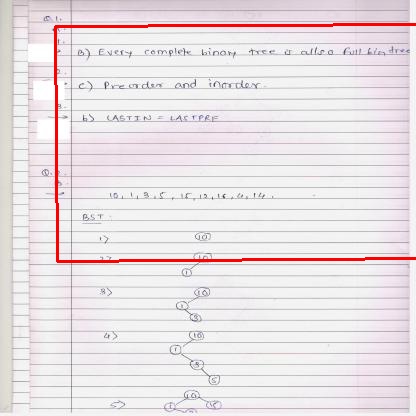 Q.1.
1.
B) Every complete binary tree is allso full bin tree
2.
C) Preorder and inorder.
3.
b) LASTIN = LASTPRE
Q.2.
10, 1, 3, 5, 15, 12, 16, 4, 14.
BST :
1> 10
2> 10
1
3> 10
1
3
4> 10
1
3
5
5> 10
1 15
3